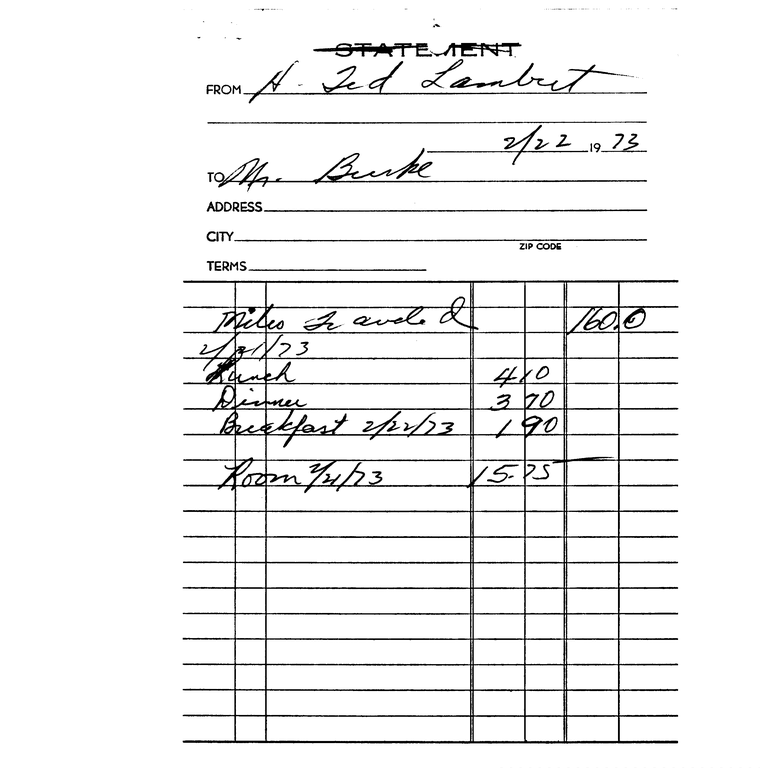 STATEMENT
FROM H. Ted Lambert
2/22 1973
TO Mr. Burke
ADDRESS
CITY
ZIP CODE
TERMS
Miles Traveled 160.0
2/21/73
Lunch 4 10
Dinner 3 70
Breakfast 2/22/73 1 90
Room 2/21/73 15.75